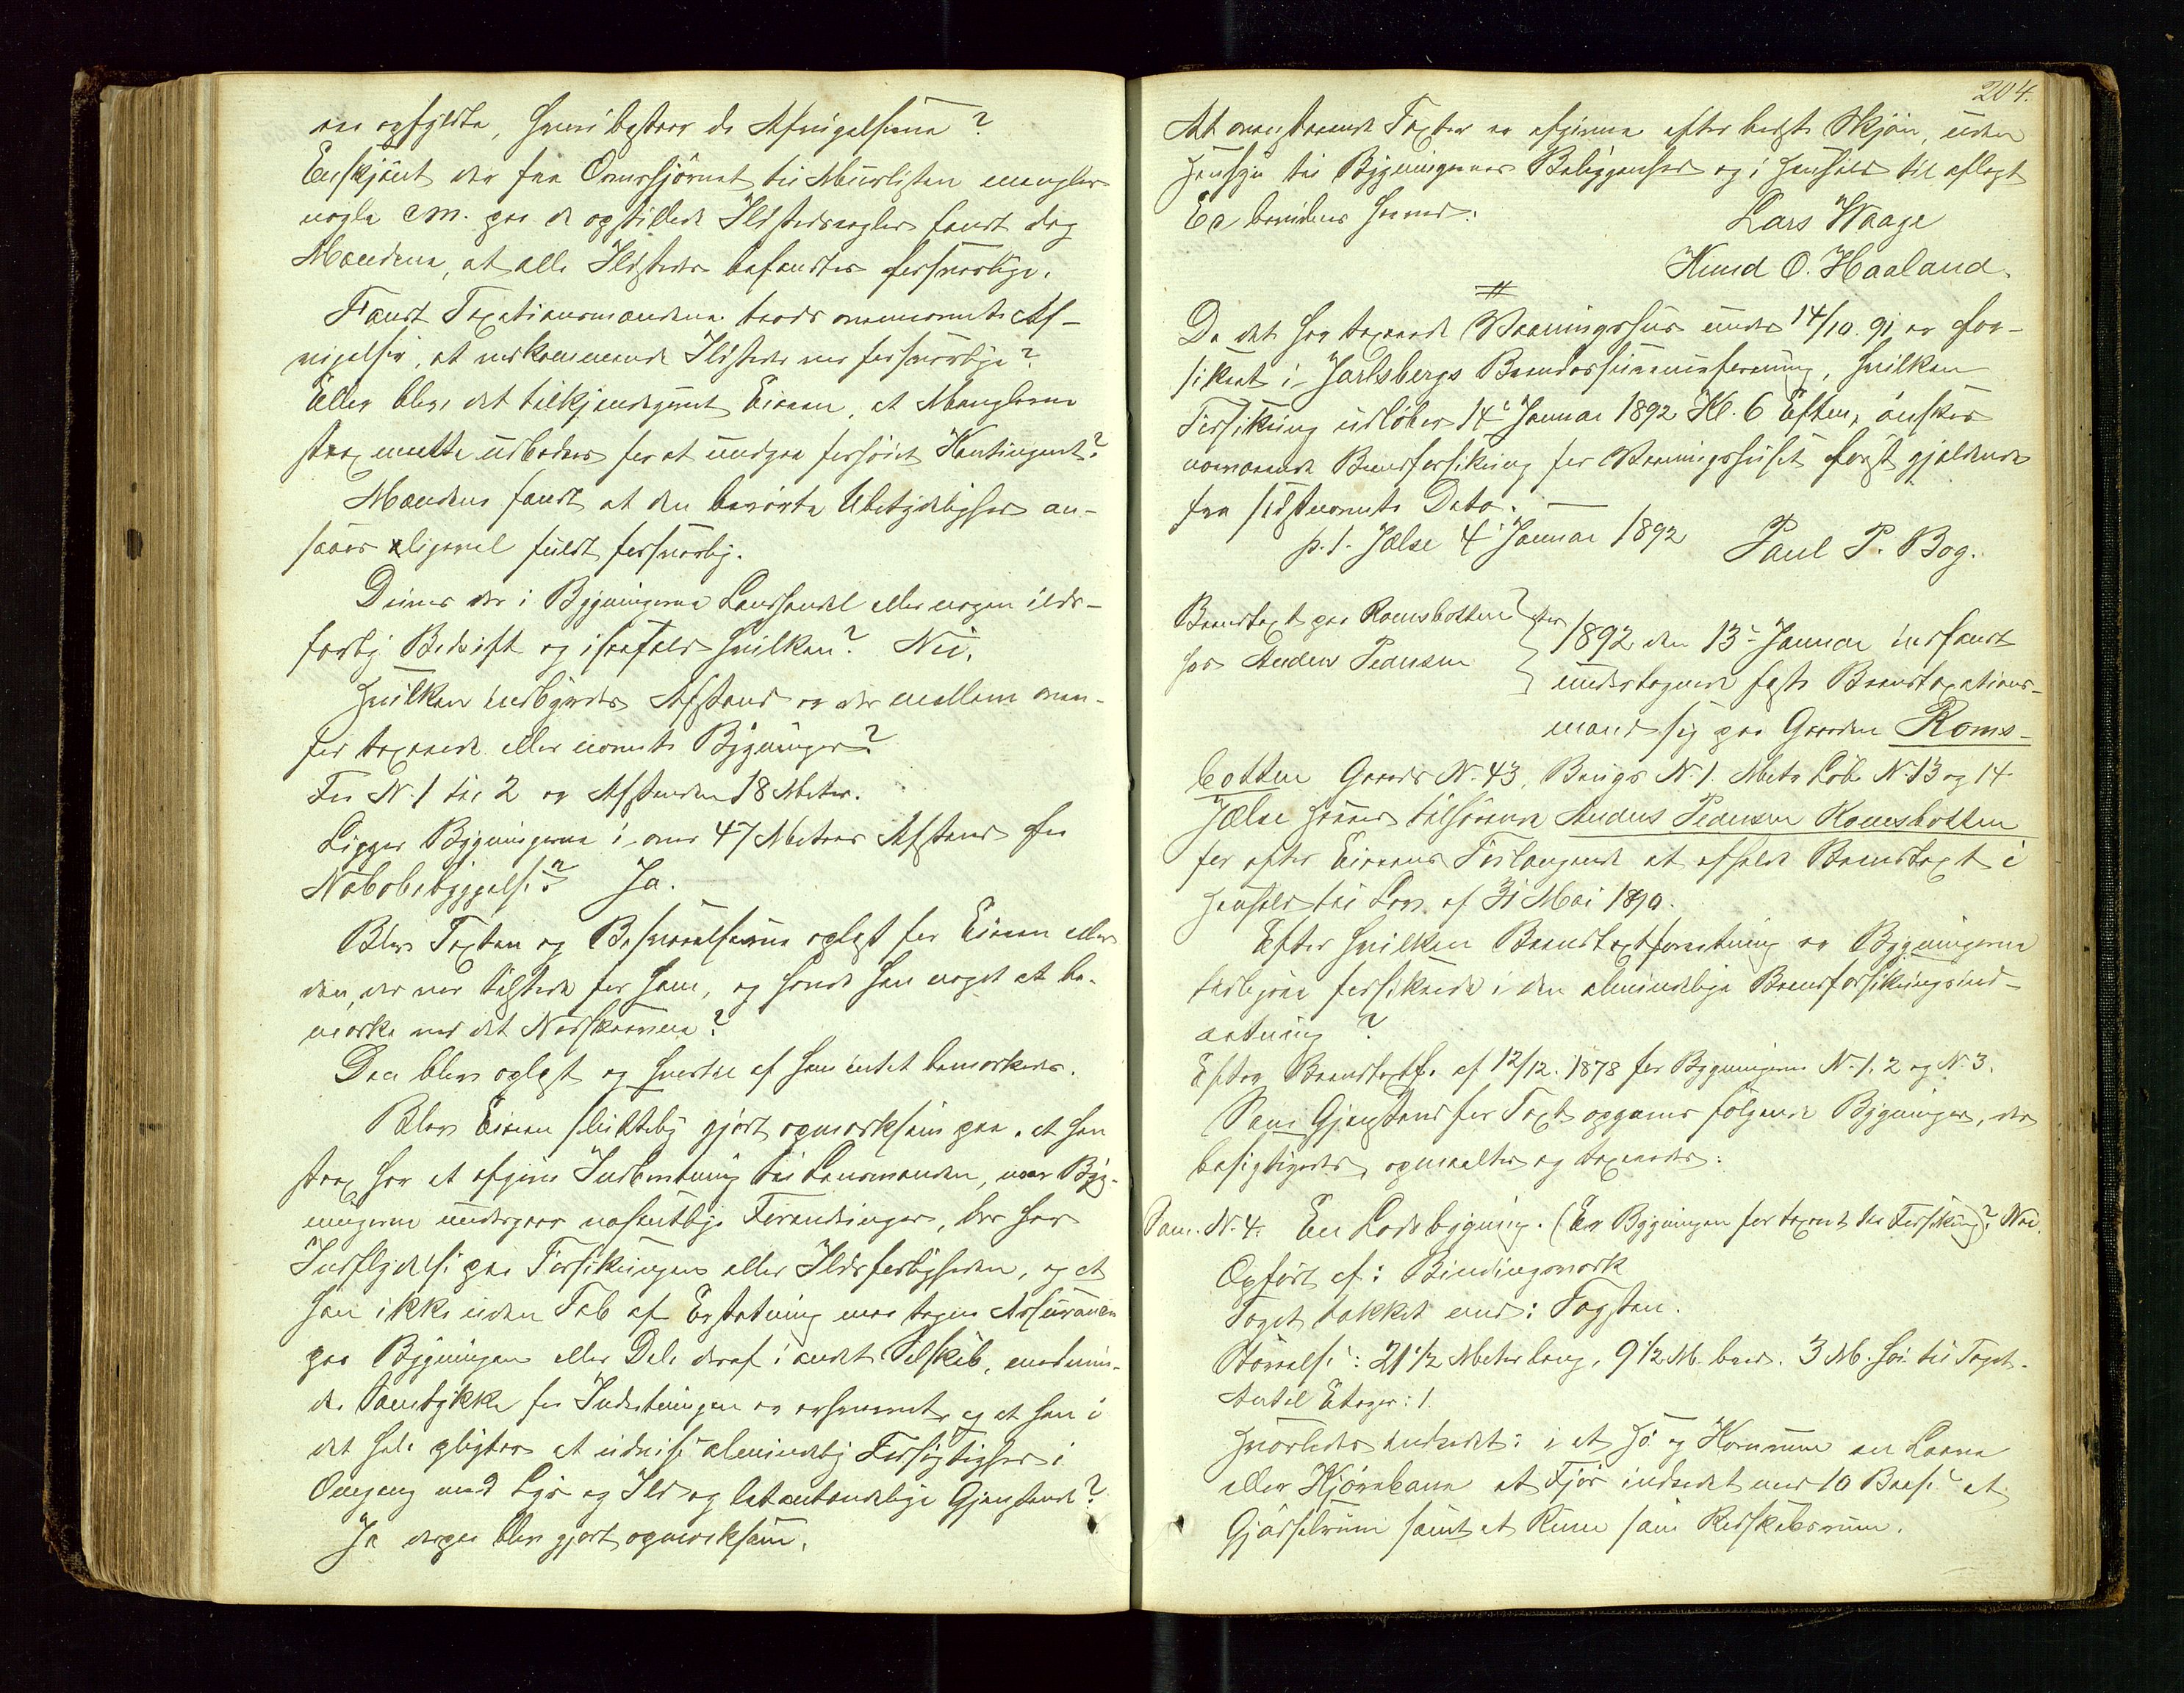 ere opfyldte, hvori bestaar de Afvigelserne?
Enskjønt der fra Ovnshjørnet til Murlisten mangler
nogle cm. paa de opstillede Ildstedsregler fandt dog
Mændene, at alle Ildsteder befandtes forsvarlige.
Fandt Taxationsmændene trods ovennævnte Af-
vigelser, at vedkommende Ildsteder var forsvarlige?
Eller blev det tilkjendegivet Eieren, at Manglerne
strax maatte udbedres for at undgaa forhøiet Kontingent?
Mændene fandt at den berørte Ubetydelighed an-
saaes ligevel fuldt forsvarlig.
Drives der i Bygningerne Landhandel eller nogen ilds-
farlig Bedrift og isaafald hvilken? Nei.
Hvilken indbyrdes Afstand er der mellem oven-
for taxerede eller nævnte Bygninger?
Fra N. 1 til 2 er Afstanden 18 Meter.
Ligger Bygningerne i over 47 Meters Afstand fra
Nabobebyggelse? Ja.
Blev Taxten og Besvarelserne oplæst for Eieren eller
den, der var tilstede for ham, og havde han noget at be-
mærke ved det Nedskrevne?
Den blev oplæst og hvortil af ham intet bemærkedes.
Blev Eieren skriftelig gjort opmærksom paa, at han
strax har at afgive Indberetning til Lensmanden, naar Byg-
ningerne undergaar væsentlige Forandringer, der har
Indflydelse paa Forsikringen eller Ildsfarligheden, og at
han ikke uden Tab af Erstatning maa tegne Assurance
paa Bygningen eller Dele deraf i andet Selskab, medmin-
dre Samtykke fra Indretningen er erhvervet, og at han i
det hele pligter at udvise almindelig Forsigtighed i
Omgang med Lys og Ild og letantændelige Gjenstande?
Ja derpaa blev gjort opmerksom.
204.
At ovenstaaende Taxter er afgivne efter bedste Skjøn, uden
Hensyn til Bygningernes Beliggenhed og i Henhold til aflagt
Ed bevidnes herved:
Lars Waage
Knud O. Haaland.
Da det her taxerede Vaaningshus under 14/10. 91 er for-
sikret i Jarlsbergs Brandassuranceforening, hvilken
Forsikring udløber 14de Januar 1892 Kl. 6 Efterm, ønskes
nærværende Brandforsikring for Vaaningshuset først gjældende
fra sidstnævnte Dato. —
p. t. Jælse 4de Januar 1892
Paul P. Bog.
Brandtaxt paa Romsbotten
hos Anders Pedersen
Aar 1892 den 13de Januar indfandt
undertegnede faste Brandtaxations-
mænd sig paa Gaarden Roms-
botten Gaards N. 43, Brugs N. 1. Matr Løb N. 13 og 14
Jælse Herred tilhørende Anders Pedersen Romsbotten
for efter Eierens Forlangende at afholde Brandtaxt i
Henhold til Lov af 31 Mai 1890.
Efter hvilken Brandtaxtforretning er Bygningerne
tidligere forsikrede i den almindelige Brandforsikringsind-
retning?
Efter Brandtaxtf. af 12/12. 1878 for Bygningerne N. 1. 2 og N. 3.
Som Gjenstand for Taxt opgaves følgende Bygninger, der
besigtigedes, opmaaltes og taxeredes:
Som. N. 4. En Ladebygning. (Er Bygningen før taxeret til Forsikring)? Nei.
Opført af: Bindingsværk
Taget tækket med: Tagsten.
Størrelse: 21 1/2 Meter lang, 9 1/2 M. bred. 3 M. høi til Taget.
Antal Etager: 1.
Hvorledes indredet: i et Hø og Kornrum en Laave
eller Kjørebane et Fjøs indredet med 10 Baase et
Gjødselrum samt et Rum som Redskabsrum.